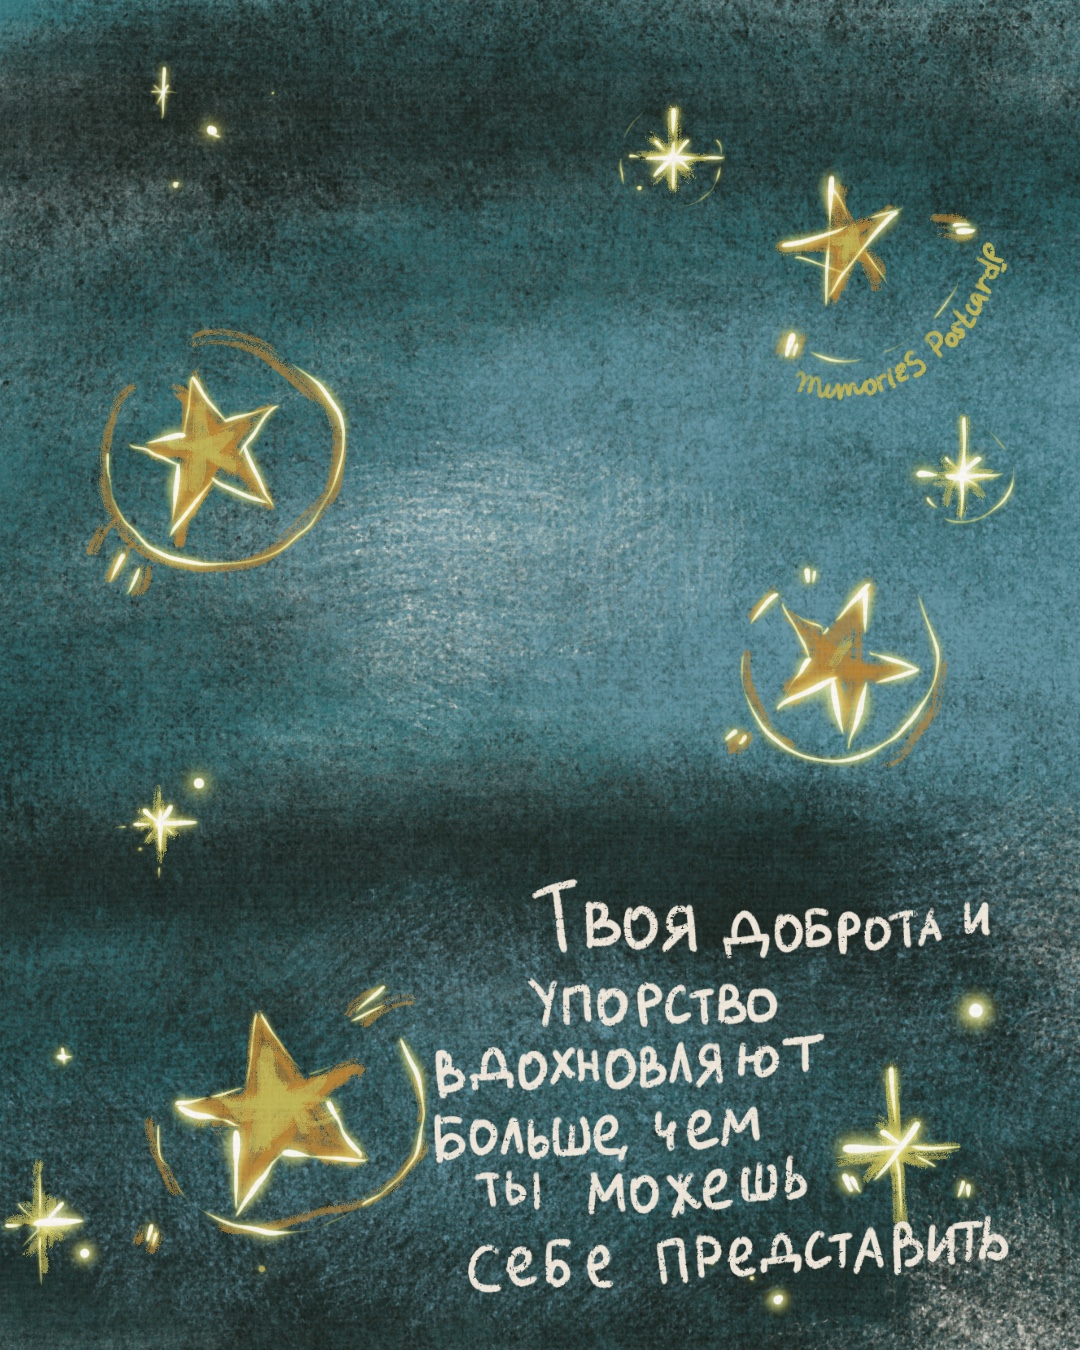 Memories Postcards
Твоя доброта и
упорство
вдохновляют
больше, чем
ты можешь
себе представить